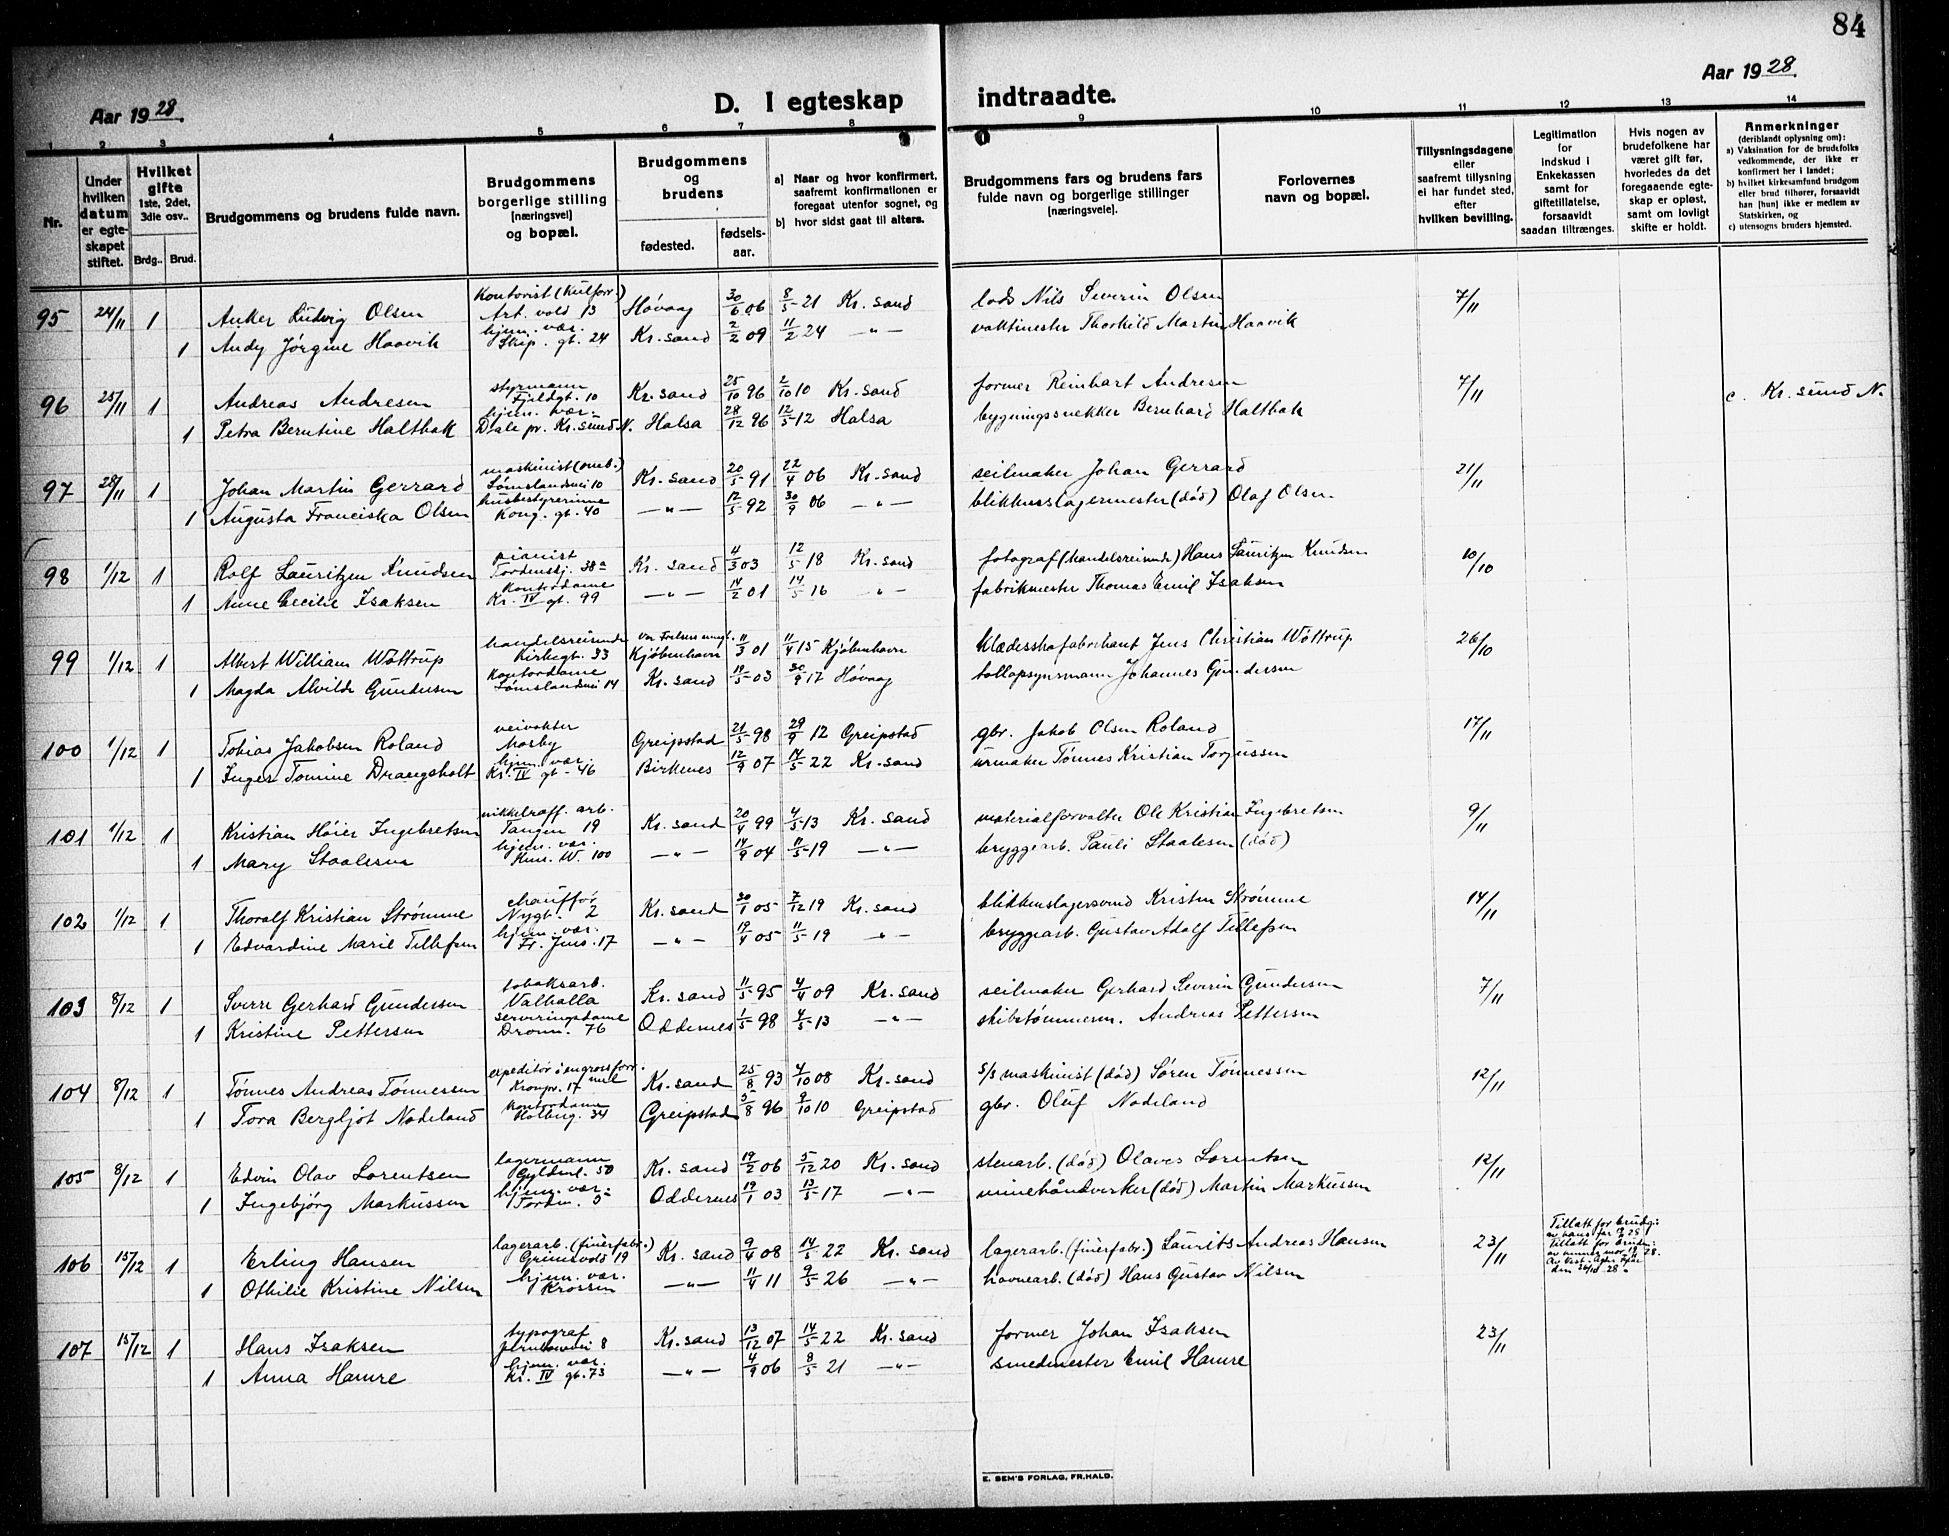 84
Aar 1928.
D. I egteskap indtraadte.
Aar 1928.
1 2 3 4 5 6 7 8 9 10 11 12 13 14
Nr.
Under hvilken datum er egteskapet stiftet.
Hvilket gifte 1ste, 2det, 3die osv..
Brdg.. Brud.
Brudgommens og brudens fulde navn.
Brudgommens borgerlige stilling [næringsvei] og bopæl.
Brudgommens og brudens
fødested.
fødselsaar.
a) Naar og hvor konfirmert, saafremt konfirmationen er foregaat utenfor sognet, og
b) hvor sidst gaat til alters.
Brudgommens fars og brudens fars fulde navn og borgerlige stillinger [næringsveie].
Forlovernes navn og bopæl.
Tillysningsdagene eller saafremt tillysning ei har fundet sted, efter hvilken bevilling.
Legitimation for indskud i Enkekassen samt for giftetillatelse, forsaavidt saadan tiltrænges.
Hvis nogen av brudefolkene har været gift før, hvorledes da det foregaaende egteskap er opløst, samt om lovligt skifte er holdt.
Anmerkninger (deriblandt oplysning om):
a) Vaksination for de brudefolks vedkommende, der ikke er konfirmert her i landet;
b) hvilket kirkesamfund brudgom eller brud tilhører, forsaavidt han [hun] ikke er medlem av Statskirken, og
c) utensogns bruders hjemsted.
95 24/11 1 Anker Ludvig Olsen Kontorist (Kulforr.) Art. vold 13 Høvaag 30/6 06 8/5-21 Kr.sand lods Nils Severin Olsen 7/11
1 Andy Jørgine Haavik hjem. vær. Skip. gt. 24 Kr.sand 2/2 09 11/2 24 —"— vaktmester Thorkild Martin Haavik
96 25/11 1 Andreas Andresen styrmann Fjeldgt. 10 Kr.sand 25/10 96 2/10 10 Kr.sand former Reinhart Andresen 7/11 c. Kr.sund N.
1 Petra Berntine Haltbak hjem. vær. Dale pr. Kr.sund N. Halsa 28/12 96 12/5-12 Halsa bygningssnekker Bernhard Haltbak
97 28/11 1 Johan Martin Gerrard maskinist (omb.) Tømslandsvei 10 Kr.sand 20/5 91 22/4 06 Kr.sand seilmaker Johan Gerrard 21/11
1 Augusta Franciska Olsen husbestyrerinne Kong. gt. 40 —"— 12/5 92 30/9 06 —"— blikkenslagermester (død) Olaf Olsen
98 1/12 1 Rolf Lauritzen Knudsen pianist Tordenskj. 38a Kr.sand 4/3 03 12/5 18 Kr.sand fotograf (handelsreisende) Hans Lauritzen Knudsen 10/10
1 Anne Cecilie Isaksen Kontordame Kr. IV gt. 99 —"— 14/2 01 14/5 16 —"— fabrikmester Thomas Emil Isaksen
99 1/12 1 Albert William Wøttrup handelsreisende Kirkegt. 33 Vor Frelsers mngt. Kjøbenhavn 11/3 01 11/4 15 Kjøbenhavn Klædesskofabrikant Jens Christian Wøttrup 26/10
1 Magda Alvilde Gundersen Kontordame Tømslandsvei 14 Kr.sand 19/5 03 30/9 17 Høvaag tollopsynsmann Johannes Gundersen
100 1/12 1 Tobias Jakobsen Roland veivokter Mosby Greipstad 21/5 98 29/9 12 Greipstad gbr. Jakob Olsen Roland 17/11
1 Inger Tomine Drangsholt hjem. vær. Kr. IV gt. 46 Birkenes 12/9 07 14/5 22 Kr.sand urmaker Tønnes Kristian Torjussen
101 1/12 1 Kristian Høier Ingebretsen nikkelraff. arb. Tangen 19 Kr.sand 20/4 99 4/5-13 Kr.sand materialforvalter Ole Kristian Ingebretsen 9/11
1 Mary Staalesen hjem. vær. Knu. W. 100 —"— 14/9 04 11/5-19 —"— bryggearb. Pauli Staalesen (død)
102 1/12 1 Thoralf Kristian Strømme chauffør Nygt. 2 Kr.sand 30/1 05 7/12 19 Kr.sand blikkenslagersvend Kristen Strømme 14/11
1 Edvardine Marie Tellefsen hjem. vær. Fr. Jens. 17 —"— 19/4 05 11/5-19 —"— bryggearb. Gustav Adolf Tellefsen
103 8/12 1 Sverre Gerhard Gundersen tobaksarb. Valhalla Kr.sand 11/5 95 4/4 09 Kr.sand seilmaker Gerhard Severin Gundersen 7/11
1 Kristine Pettersen serveringsdame Dronn. 76 Oddernes 1/5 98 4/5-13 —"— skibstømmerm. Andreas Pettersen
104 8/12 1 Tønnes Andreas Tønnessen expeditør i engrosforr. mel Kronpr. 17 Kr.sand 25/8 93 4/10 08 Kr.sand s/s maskinist (død) Søren Tønnessen 12/11
1 Tora Bergljot Nodeland Kontordame Holberg. 34 Greipstad 5/8 96 9/10 10 Greipstad gbr. Oluf Nodeland
105 8/12 1 Edvin Olav Lorentsen lagermann Gyldenl. 50 Kr.sand 19/2 06 5/12 20 Kr.sand stenarb. (død) Olaves Lorentsen 12/11
1 Ingebjørg Markussen hjem. vær. Torden. 5 Oddernes 19/1 03 13/5-17 —"— minehåndverker (død) Martin Markussen
106 15/12 1 Erling Hansen lagerarb. (finerfabr.) Grimsvold 19 Kr.sand 9/4 08 14/5 22 Kr.sand lagerarb. (finerfabr.) Laurits Andreas Hansen 23/11 Tillatt for brudg: av hans far
Tillatt for bruden: av hennes mor
1 Othilie Kristine Nilsen hjem. vær. Krossen —"— 11/4 11 9/5-26 —"— havnearb. (død) Hans Gustav Nilsen
107 15/12 1 Hans Isaksen typograf 8 Kr.sand 13/12 07 14/5 22 Kr.sand former Johan Isaksen 23/11
1 Anna Hamre hjem. vær. Kr. IV gt. 73 —"— 4/9 06 8/5 21 —"— smedmester Emil Hamre
E. SEM'S FORLAG, FR.HALD.